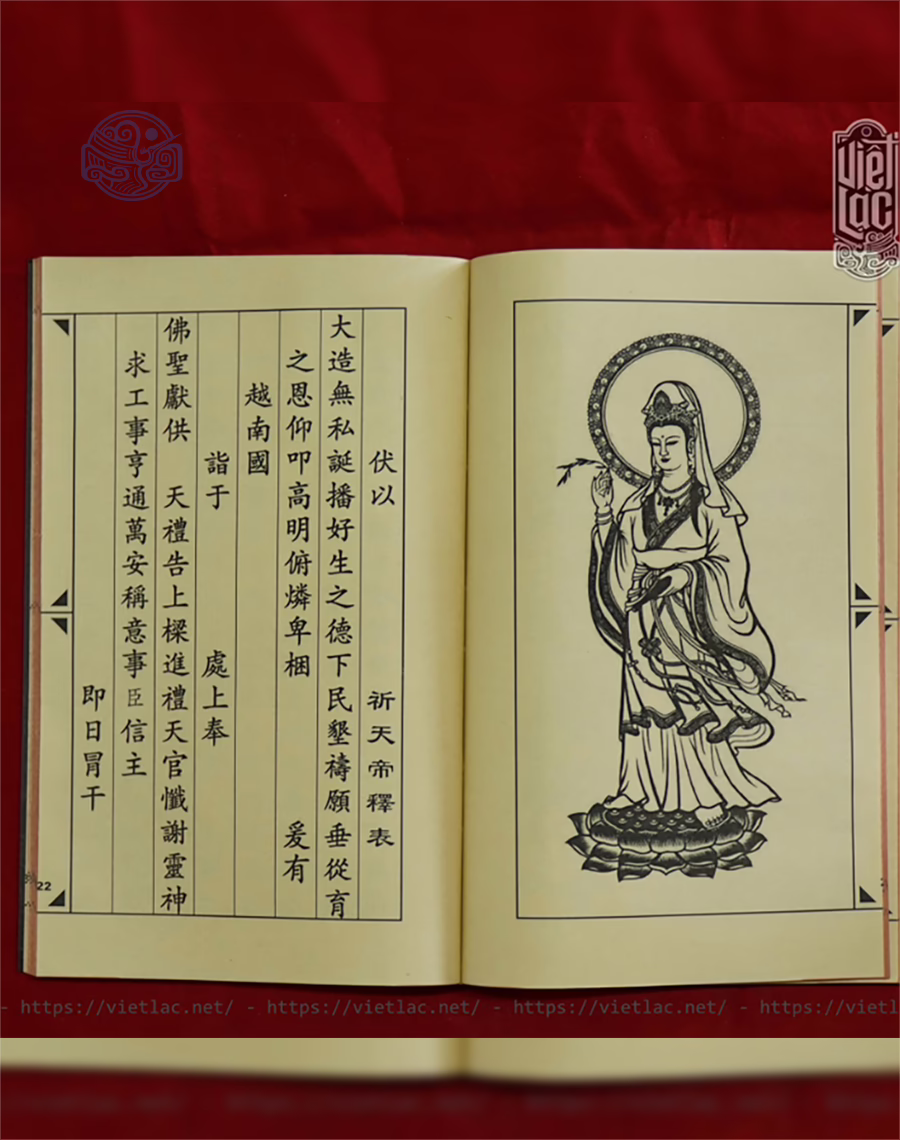 伏以 祈天帝釋表
大造無私誕播好生之德下民墾禱願垂從育
之恩仰叩高明俯燐卑梱 爰有
越南國
詣于 處上奉
佛聖獻供 天禮告上樑進禮天官懺謝靈神
求工事亨通萬安稱意事臣信主
即日冐干
22
Việt
Lạc
- https://vietlac.net/ - https://vietlac.net/ - https://vietlac.net/ - https://vietl